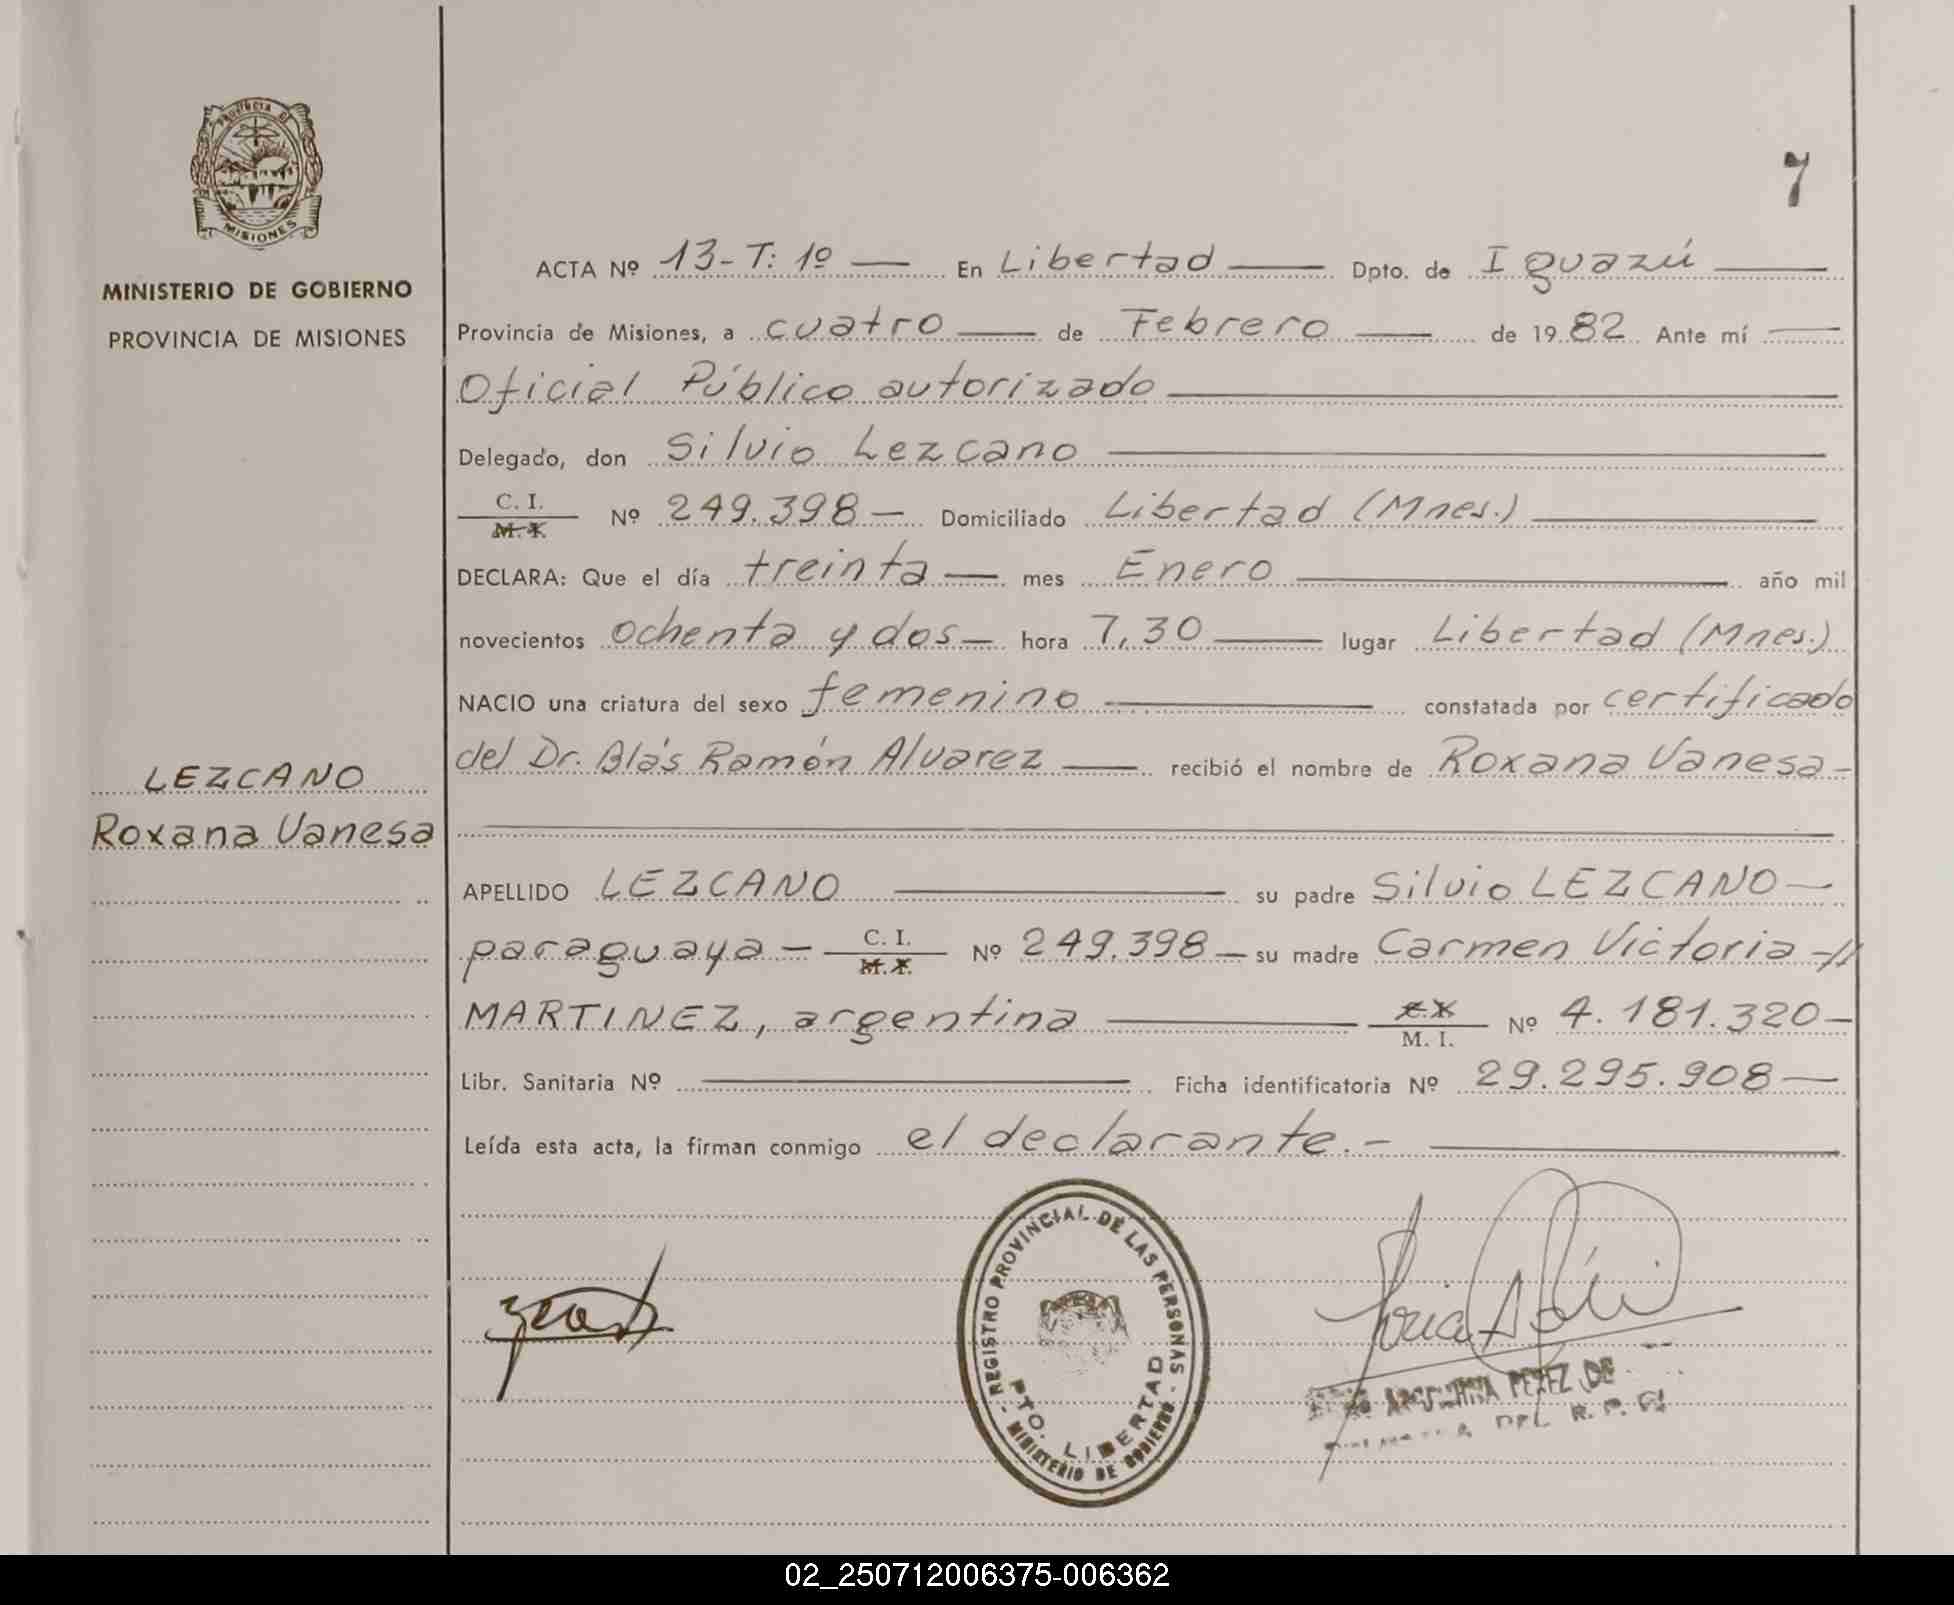 PROVINCIA DE
MISIONES
MINISTERIO DE GOBIERNO
PROVINCIA DE MISIONES
LEZCANO
Roxana Vanesa
7
ACTA Nº 13-T: 1º — En Libertad — Dpto. de Iguazú —
Provincia de Misiones, a cuatro — de Febrero — de 1982 Ante mí —
Oficial Público autorizado —
Delegado, don Silvio Lezcano —
C. I.
M. I. Nº 249.398 — Domiciliado Libertad (Mnes.) —
DECLARA: Que el día treinta — mes Enero — año mil
novecientos ochenta y dos — hora 7,30 — lugar Libertad (Mnes.)
NACIO una criatura del sexo femenino — constatada por certificado
del Dr. Blás Ramón Alvarez — recibió el nombre de Roxana Vanesa —
APELLIDO LEZCANO — su padre Silvio LEZCANO —
paraguaya — C. I.
M. I. Nº 249.398 — su madre Carmen Victoria —//
MARTINEZ, argentina — M. I. Nº 4.181.320 —
Libr. Sanitaria Nº — Ficha identificatoria Nº 29.295.908 —
Leída esta acta, la firman conmigo el declarante.- —
REGISTRO PROVINCIAL DE LAS PERSONAS
PTO. LIBERTAD
MINISTERIO DE GOBIERNO
PEREZ DE
DEL R. P.
02_250712006375-006362